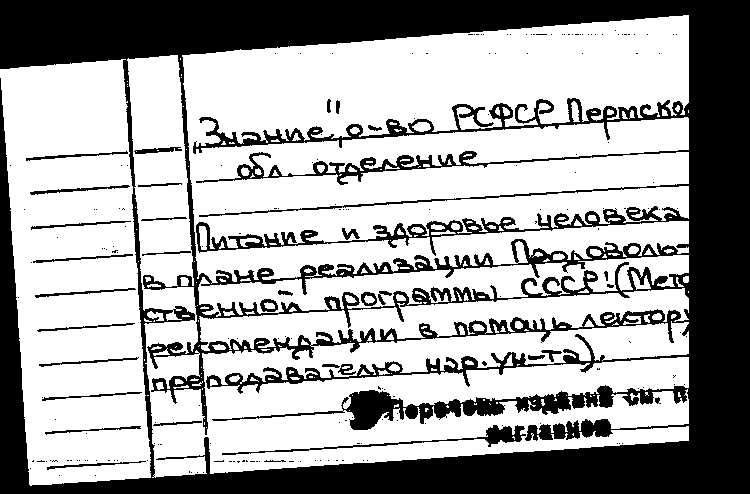 „Знание", о-во РСФСР. Пермское
обл. отделение.
Питание и здоровье человека
в плане реализации Продоволь-
ственной программы СССР: (Мето
рекомендации в помощь лектору,
преподавателю нар. ун-та).
Перечень изданий см. п
заглавной